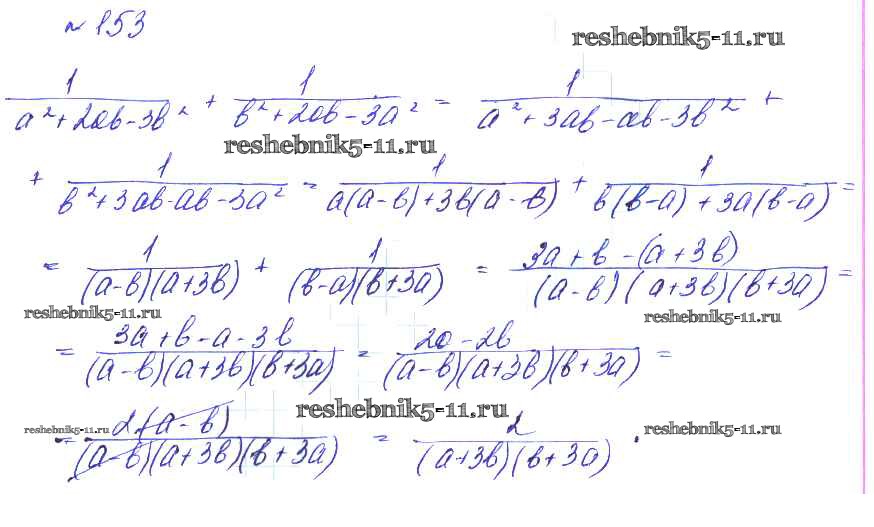 № 153
reshebnik5-11.ru
1/(a²+2ab-3b²) + 1/(b²+2ab-3a²) = 1/(a²+3ab-ab-3b²) +
reshebnik5-11.ru
+ 1/(b²+3ab-ab-3a²) = 1/(a(a-b)+3b(a-b)) + 1/(b(b-a)+3a(b-a)) =
= 1/((a-b)(a+3b)) + 1/((b-a)(b+3a)) = (3a+b-(a+3b))/((a-b)(a+3b)(b+3a)) =
reshebnik5-11.ru reshebnik5-11.ru
= (3a+b-a-3b)/((a-b)(a+3b)(b+3a)) = (2a-2b)/((a-b)(a+3b)(b+3a)) =
reshebnik5-11.ru
reshebnik5-11.ru reshebnik5-11.ru
= 2·(a-b)/((a-b)(a+3b)(b+3a)) = 2/((a+3b)(b+3a)).